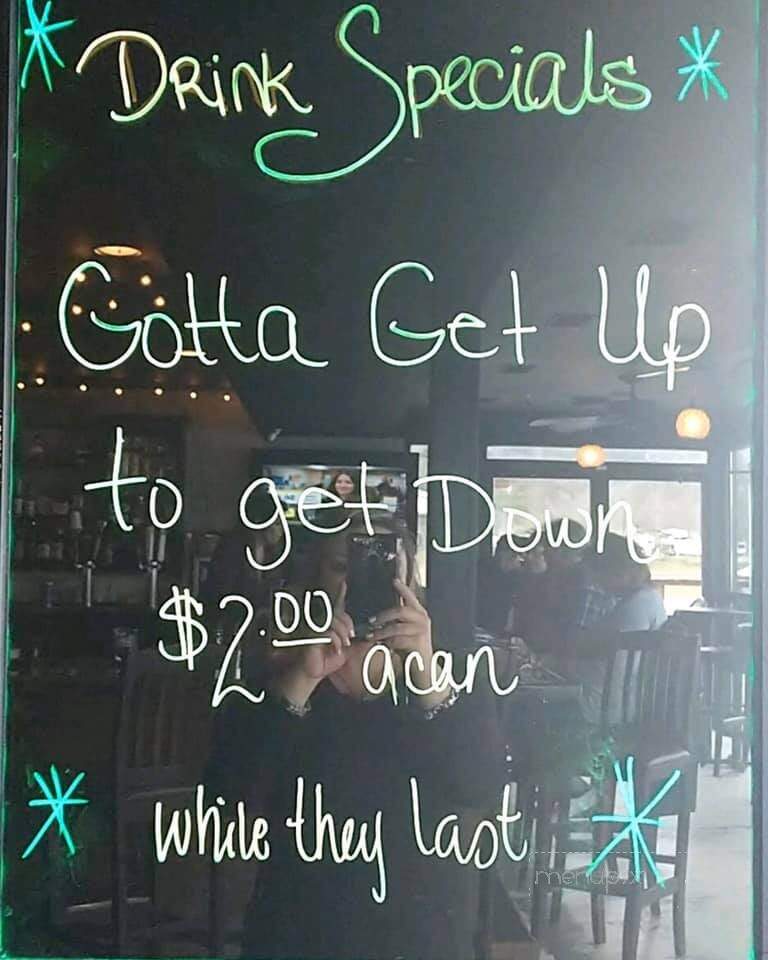 Drink Specials
Gotta Get Up
to get Down
$2.00 a can
while they last